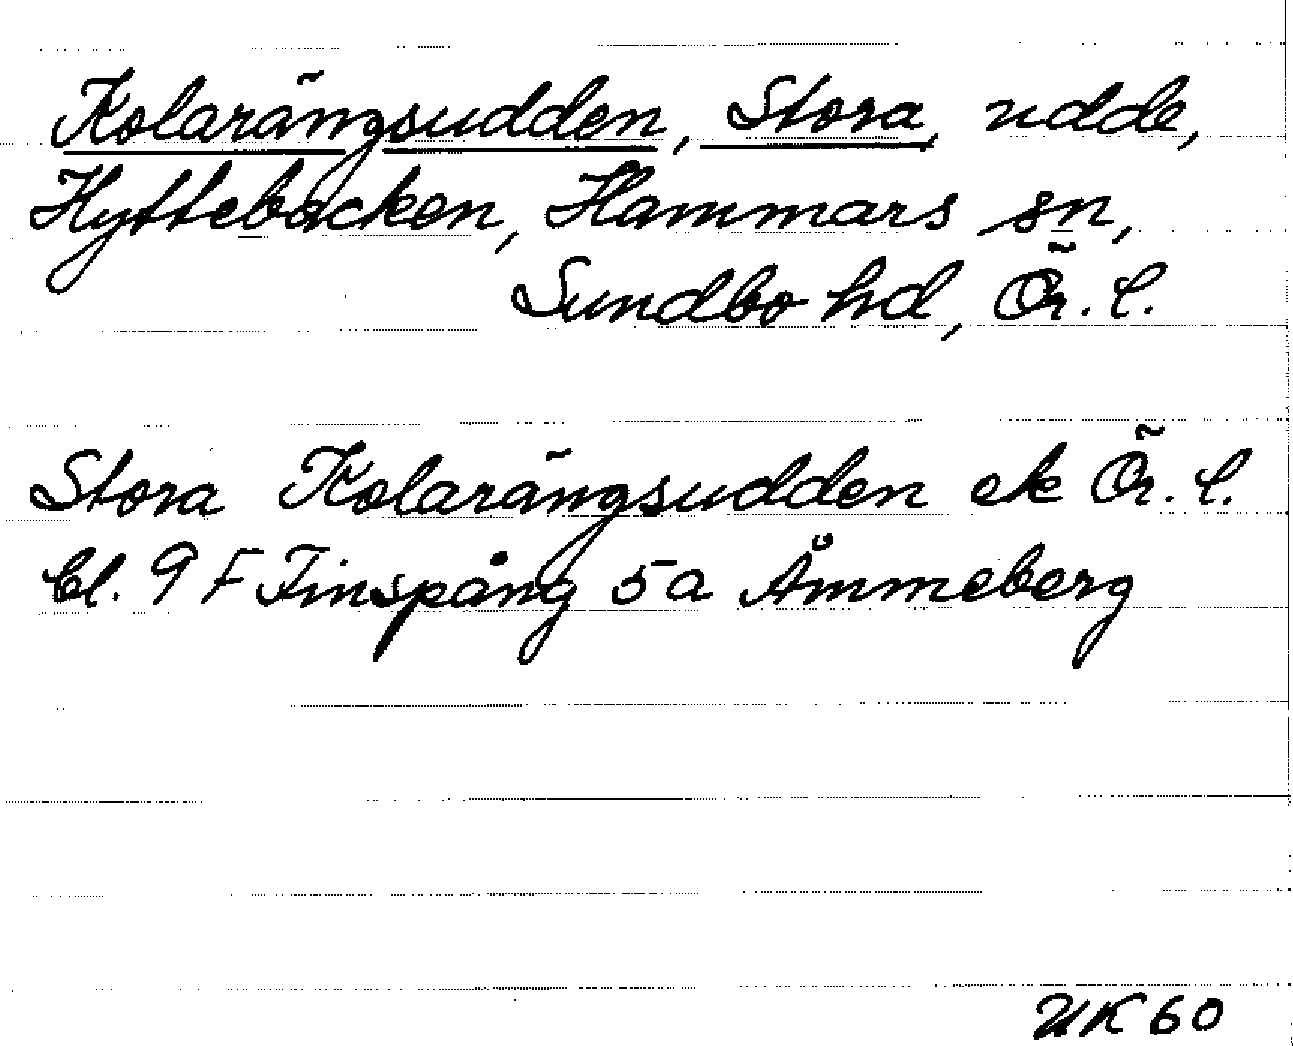 Kolarängsudden, Stora, udde,
Hyttebacken, Hammars sn,
Sundbo hd, Ör. l.
Stora Kolarängsudden ek Ör. l.
bl. 9 F Finspång 5a Åmmeberg
UK 60